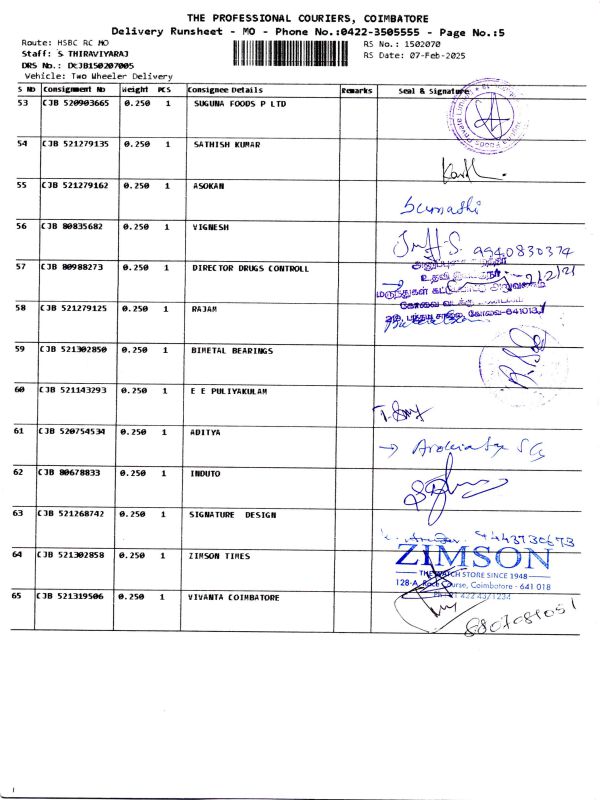 THE PROFESSIONAL COURIERS, COIMBATORE
Delivery Runsheet - MO - Phone No.:0422-3505555 - Page No.:5
Route: HSBC RC MO
RS No.: 1502070
Staff: S THIRAVIYARAJ
RS Date: 07-Feb-2025
DRS No.: DCJB150207005
Vehicle: Two Wheeler Delivery
S No Consignment No Weight PCS Consignee Details Remarks Seal & Signature
53 CJB 520903665 0.250 1 SUGUNA FOODS P LTD
54 CJB 521279135 0.250 1 SATHISH KUMAR
55 CJB 521279162 0.250 1 ASOKAN
Sumathi
56 CJB 80835682 0.250 1 VIGNESH
9940830374
57 CJB 80988273 0.250 1 DIRECTOR DRUGS CONTROLL
58 CJB 521279125 0.250 1 RAJAM
கோவை-641013
59 CJB 521302850 0.250 1 BIMETAL BEARINGS
60 CJB 521143293 0.250 1 E E PULIYAKULAM
61 CJB 520754534 0.250 1 ADITYA
62 CJB 80678833 0.250 1 INDUTO
63 CJB 521268742 0.250 1 SIGNATURE DESIGN
64 CJB 521302858 0.250 1 ZIMSON TIMES
ZIMSON
THE WATCH STORE SINCE 1948
128-A, Race Course, Coimbatore - 641 018
65 CJB 521319506 0.250 1 VIVANTA COIMBATORE